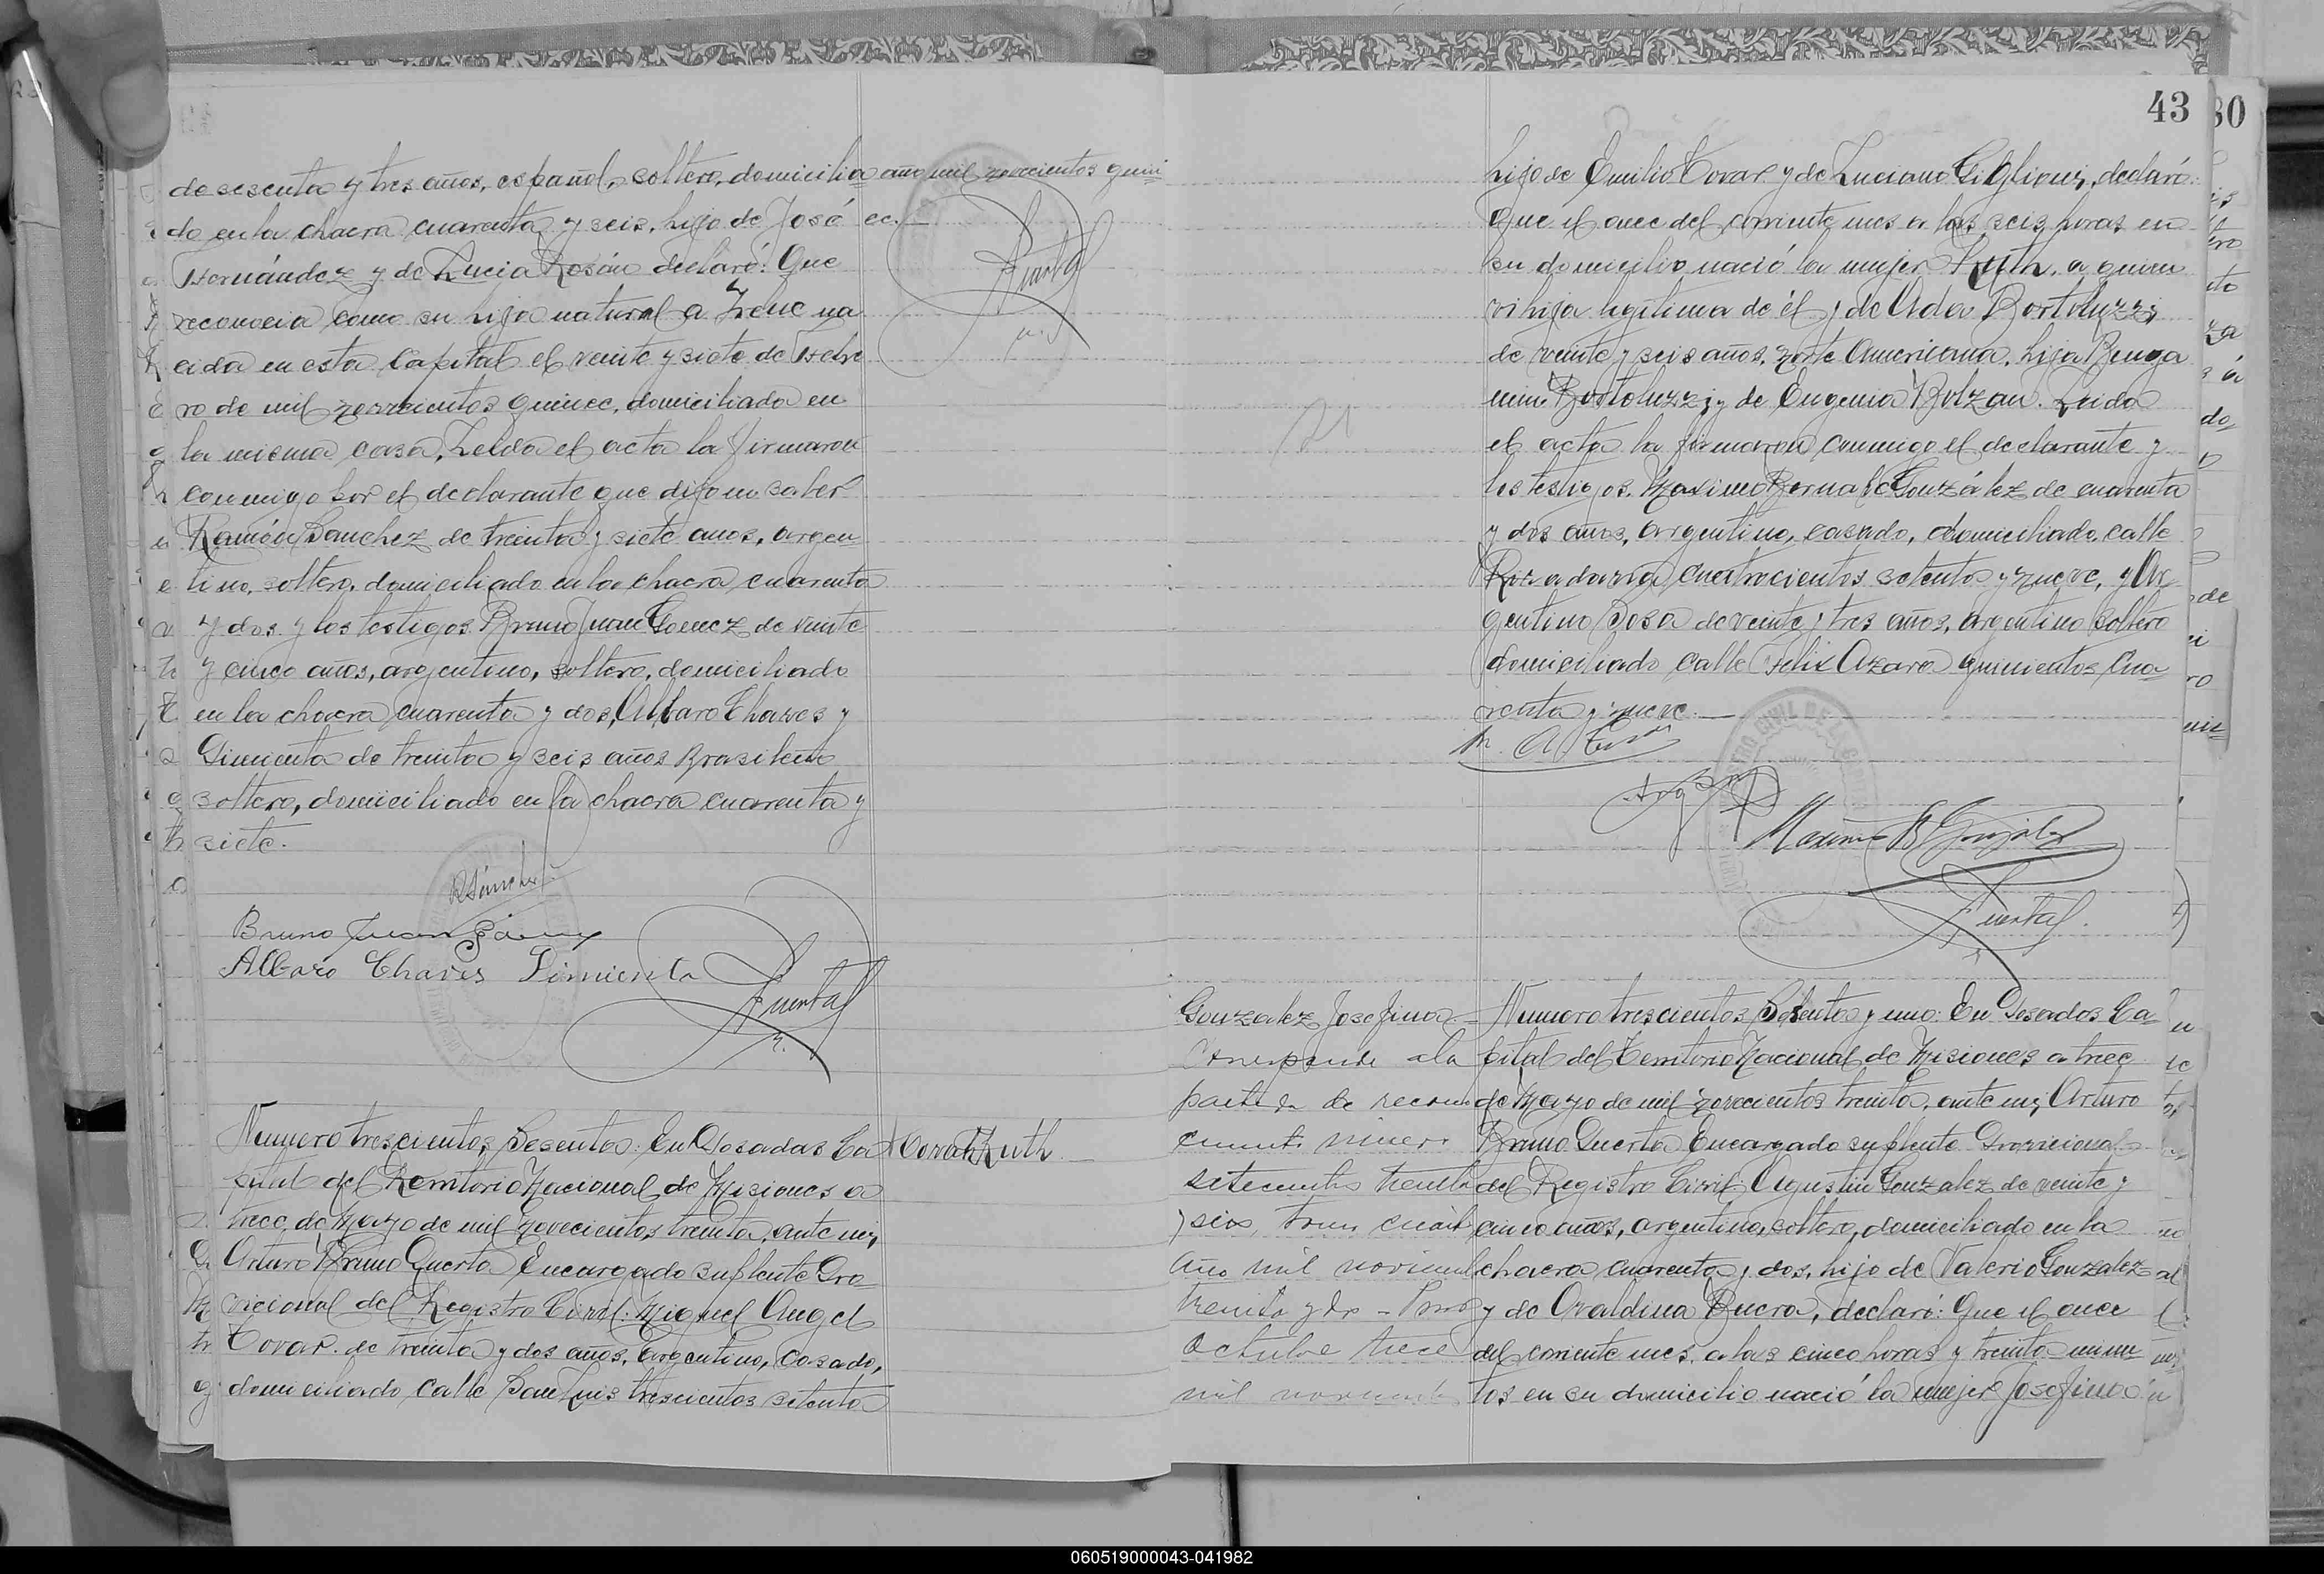 de sesenta y tres años, español, soltero, domicilia
do en la chacra cuarenta y seis, hijo de José
Hernández y de Lucia Rosán declaró: Que
reconocia como su hija natural a Irene na
cida en esta Capital el veinte y siete de Febre
ro de mil novecientos quince, domiciliado en
la misma casa, Leida el acta la firmaron
conmigo por el declarante que dijo no saber
Ramón Sanchez de treinta y siete anos, argen
tino, soltero, domiciliado en la chacra cuarenta
y dos y los testigos Bruno Juan Gomez de veinte
y cinco años, argentino, soltero, domiciliado
en la chacra cuarenta y dos, Albaro Chaves y
Pimienta de treinta y seis años Brasileño
soltero, domiciliado en la chacra cuarenta y
siete.
año mil novecientos quin
ce.
RSánchez
Bruno Juan Gómez
Albaro Chaves Pimienta
Numero trescientos, Sesenta: En Posadas Ca
pital del Territorio Nacional de Misiones a
trece de Mayo de mil novecientos treinta, ante mi,
Arturo Bruno Puerta Encargado suplente Pro
vicional del Registro Civil: Miguel Angel
Tovar. de treinta y dos años, argentino, Casado,
domiciliado calle San Luis trescientos setenta
Tovar Ruth
43
30
hijo de Emilio Tovar y de Luciana declaró:
Que el once del corriente mes a las seis horas en
su domicilio nació la mujer Ruth, a quien
vi hija legitima de él y de Ada Bortoluzzi,
de veinte y seis años, norte Americana, hija Benga
min Bortoluzzi y de Eugenia Bolzan. Leida
el acta la firmaron conmigo el declarante y
los testigos. Maximo Bernabé González de cuarenta
y dos años, argentino, casado, domiciliado calle
Rivadavia cuatrocientos setenta y nueve, y Ar
gentino Sosa de veinte y tres años, argentino soltero
domiciliado calle Felix Azara quinientos cua
renta y nueve.
Maximo B González
Gonzalez Josefina
Corresponde a la
partida de recono
cimiento número
setecientos treinta
y seis, tomo cuart
año mil novecien
treinta y dos - Posad
Octubre trece
mil novecientos
Numero trescientos Sesenta y uno: En Posadas Ca
pital del Territorio Nacional de Misiones a trece
de Mayo de mil novecientos treinta, ante mi, Arturo
Bruno Puerta Encargado suplente Provicional
del Registro Civil: Agustin Gonzalez de veinte y
cinco años, argentino, soltero, domiciliado en la
chacra cuarenta y dos, hijo de Valerio Gonzalez
y de Ovaldina declaró: Que el once
del corriente mes, a las cinco horas y treinta minu
tos en su domicilio nació la mujer Josefina
060519000043-041982